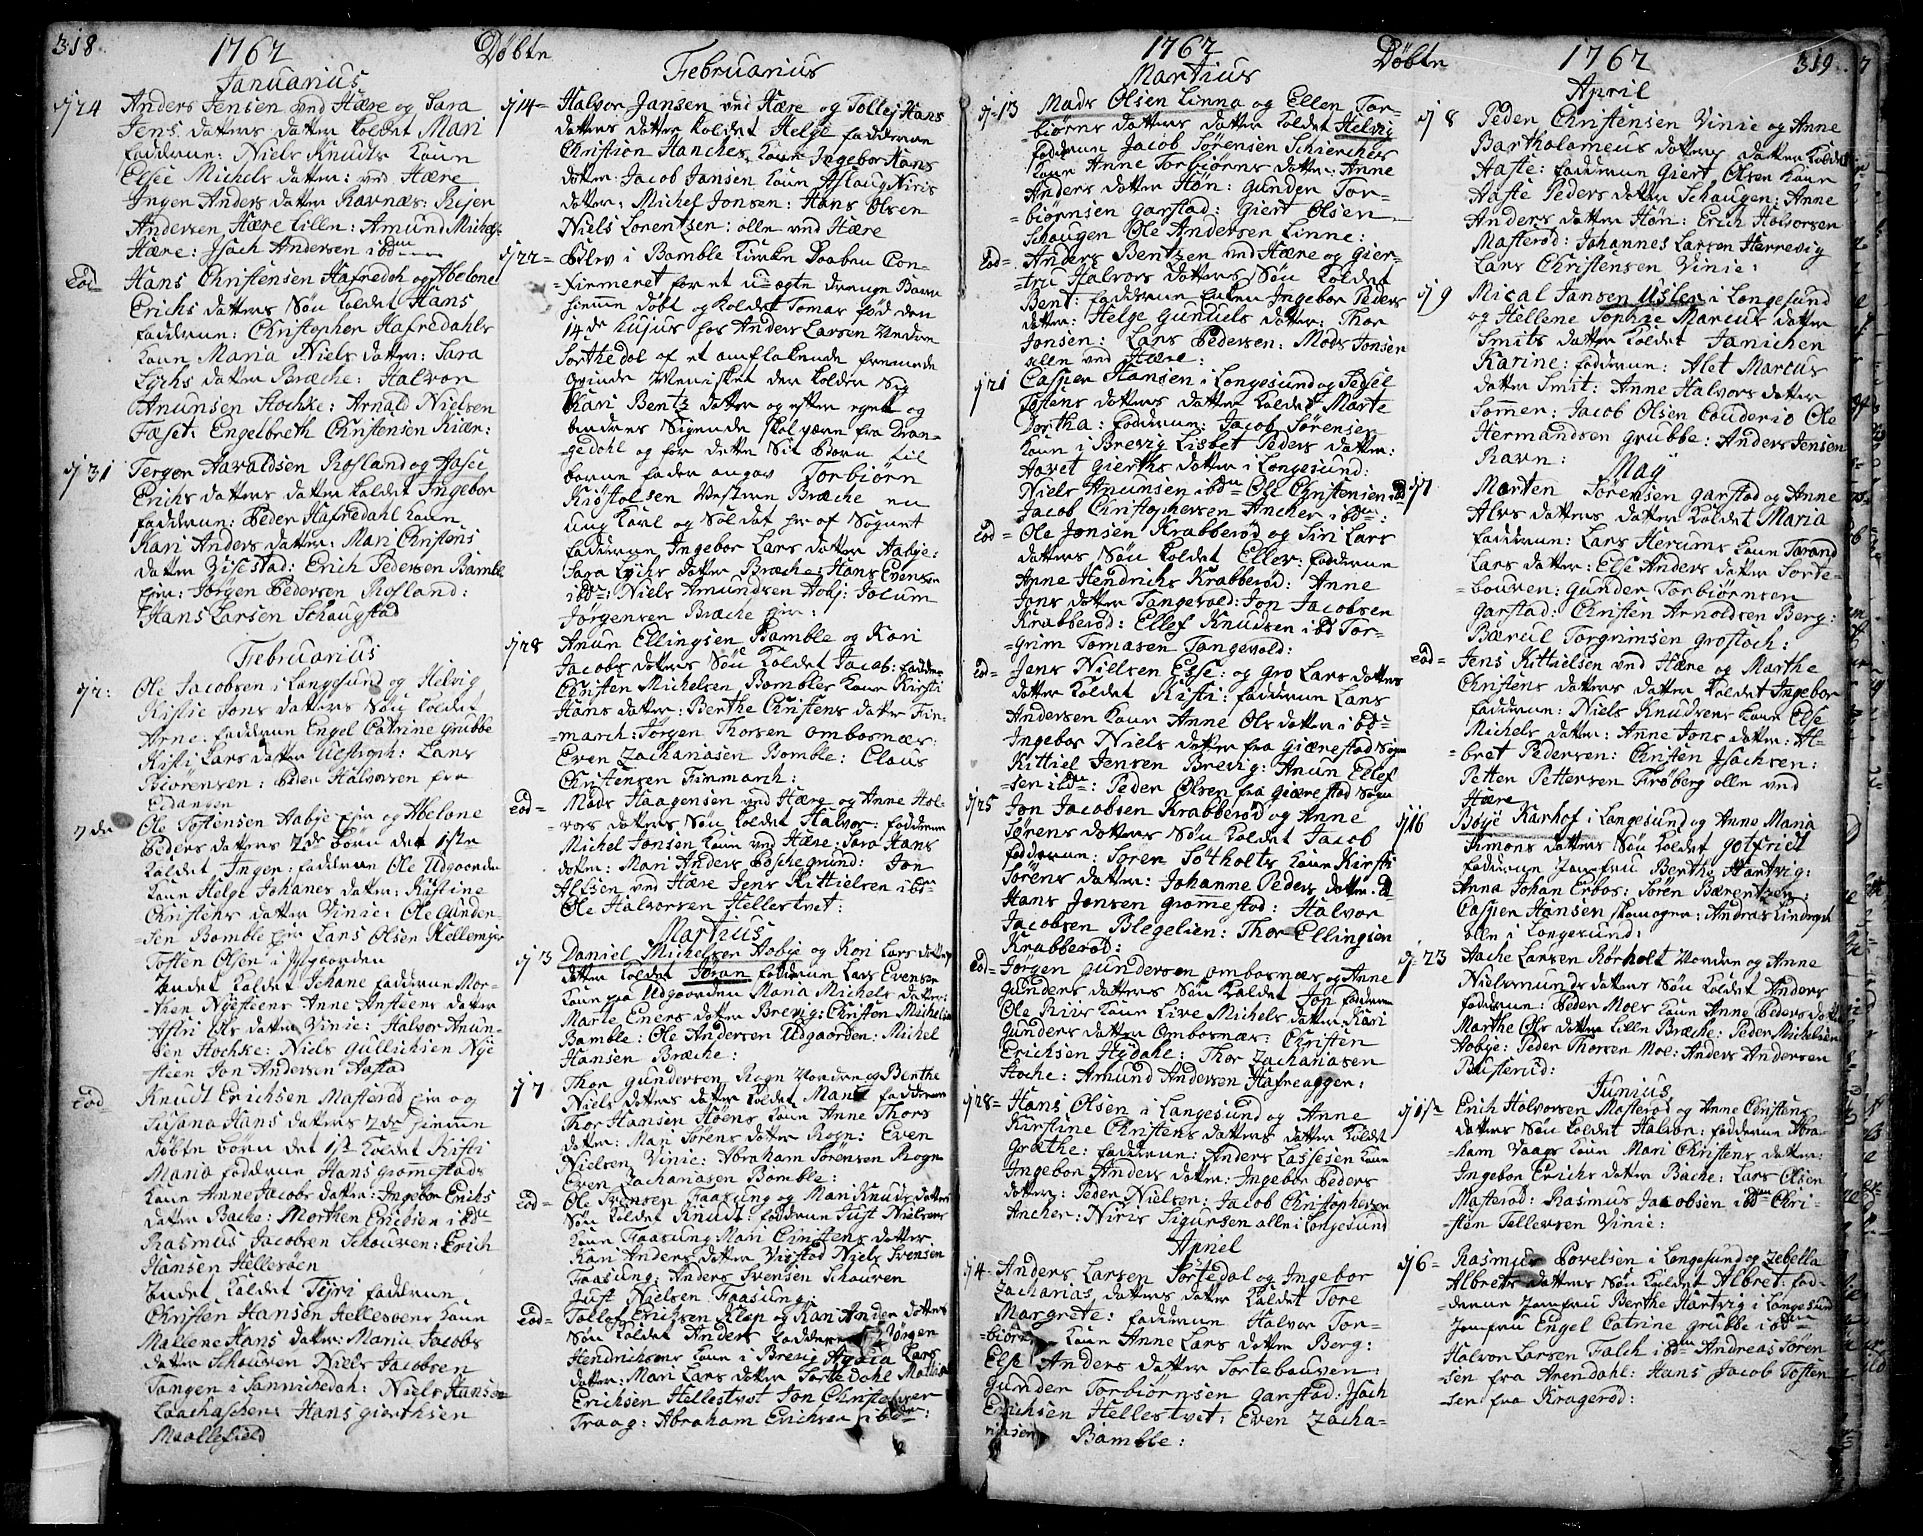 318.
1762
Döbte
Januarius
d/24 Anders Jensen ved Hære og Sara
Jens datters datter koldet Mari
fadderne: Niels Knudts Kone
Elsee Michels datter: ved Hære
Ingen Anders datter Ravnæs: Rejer
Andersen Hære lille: Amund Michels
Hære: Isach Andersen ibdm
Eod= Hans Christensen Hafredal og Abelone
Erichs datters Søn koldet Hans
fadderne: Christopher Hafredahls
Kone Maria Niels datter: Sara
Lychs datter Bræche: Halvor
Anunsen Stochke: Arnald Nielsen
Fæset: Engelbreth Christensen Kiær:
d/31 Terger Haraldsen Rosland og Aasee
Erichs datters datter koldet Ingebor
fadderne: Peder Hafredahl Kone
Kari Anders datter: Mari Christens
datter Visestad: Erich Pedersen Bamble
Eier: Jørgen Pedersen Rosland:
Hans Larsen Schaugstad
Februarius
d/2: Ole Jacobsen i Langesund og Helvig
Kistie Jons datters Søn koldet
Arne: fadderne Engel Catrine Grubbe
Kisti Lars datter Ulstrøph: Lars
Biørensen: Peder Halvorsen fra
Eidangen
7de Ole Tostensen Aabye Eier og Abelone
Peders datters 2de Børn det 1ste
koldet Ingen: fadderne Ole Udgaarden
Kone Helge Johanes datter: Kistine
Christens datter Vinie: Ole Gunder-
=sen Bamble Eier Lars Olsen Hellemyr
Tosten Olsen i Udgaarden
Andet koldet Johane fadderne Mor-
=then Nyesteens Anne Anstens datter
Astri Ols datter Vinie: Halvor Anun-
sen Stochke: Niels Gullichsen Nye
=steen Jon Andersen Aastad
Eod= Knudt Erichsen Masterød Eier og
Susana Hans datters 2de hieme
Døbte børn det 1ste koldet Kisti
Maria fadderne Hans Grømmestads
Kone Anne Jacobs datter: Ingebor Erichs
datter Bache: Morthen Erichsen ibdm
Rasmus Jacobsen Schouven: Erich
Hansen Hellesøen
Andet koldet Tyri fadderne
Christen Hansen Hellesøens Kone
Mallene Hans datter: Maria Jacobs
datter Schouven Niels Jacobsen
Tangen i Sannichedal: Niels Hansen
Laachaschen: Hans Gierthsen
Maallefield
Februarius
d/14= Halvor Jansen ved Hære og Tollej Hans
datters datter koldet Helge fadderne
Christian Hanches Kone Ingebor Hans
datter: Jacob Jansen Kone Aslaug Niris
datter: Michel Jonsen: Hans Olsen
Niels Lorentzen: alle ved Hære
d/22= Blev i Bamble Kirke Daaben Con-
=firmeret for et u-ægte drenge Barn
hieme døbt og koldet Tomas fød den
14de hujus hos Anders Larsen Nedre
Sorthedal af et omflakende fremmede
Qvinde Menisket der kolder sig
Kari Bentz datter og efter eget og
andres Sigende skal være fra Dran-
gedahl og for dette Sit Barn til
barne fader angav Torbiørn
Kistolsen Vestere Bræche en
ung Karl og Soldat her af Sognet
fadderne Ingebor Lars datter Aabye:
Sara Lychs datter Bræche: Hans Evensen
ibdm: Niels Amundsen Aabj: Jocum
Jørgensen Bræche Eier:
d/28 Anun Ellingsen Bamble og Kari
Jacobs datters Søn koldet Jacob: fadderne
Christen Michelsen Bambles Kone Kirsti
Hans datter: Berthe Christens datter Fin-
=march: Jørgen Thorsen Ombosnæs:
Even Zachariasen Bomble: Claus
Christensen Finmarch:
eod= Mads Haagensen ved Hære og Anne Hal-
vors datters Søn koldet Halvor: fadderne
Michel Jonsen Kone ved Hære: Sara Hans
datter: Mari Anders Poschegrund: Jon
Alfsen ved Hære Jens Kittielsen ibdm
Ole Halvorsen Hellestvet:
Martius
d/3 Daniel Michelsen Aabye og Kari Lars datters
datter koldet Joran fadderne Lars Evensen
Kone paa Udgaarden Maria Michels datter:
Marte Eners datter Brevig: Christen Michelsen
Bamble: Ole Andersen Udgaarden: Michel
Hansen Bræche:
d/7 Thor Gundersen Rogn Nordre og Berthe
Niels datters datter koldet Mari fadderne
Thor Hansen Høens Kone Anne Thors
datter: Mari Sørens datter Rogn: Even
Nielsen Vinie: Abraham Sørensen Rogn
Even Zachariasen Bamble:
Eod= Ole Svensen Faasung og Mari Knuds datters
Søn koldet Knudt: fadderne Just Nielsens
Kone Faasung Mari Christens datter
Kari Anders datter Vigstad Niels Svensen
Faasung: Anders Svensen Schouven
Just Nielsen Faasung:
Eod= Tollof Erichsen Kløp og Kari Anders datters
Søn koldet Anders fadderne Jørgen
Hendrichsens Kone i Brevig Lars
datter: Mari Lars datter Sortedahl Mathis
Erichsen Hellestvet Jon Christensen
Traag: Abraham Erichsen ibdm:
1762
Döbte
Martius
d/13 Mads Olsen Linna og Ellen Tor-
biørns datters datter koldet Helvig
fadderne Jacob Sørensen Schierches
Kone Anne Torbiørns datter: Anne
Anders datter Høn: Gunder Tor-
=biørnsen Garstad: Giert Olsen
Schaugen Ole Andersen Linne:
Eod= Anders Bentzen ved Hære og Gier-
tru Halvors datters Søn koldet
Bent: fadderne Enken Ingebor Peders
datter: Helge Gundels datter: Thor
Jonsen: Lars Pedersen: Mads Jonsen
alle ved Hære:
d/21 Casper Hansen i Longesund og Segsel
Tostens datters datter koldet Marte
Dortha: fadderne: Jacob Sørensen
Kone i Brevig Lisbet Peders datter:
Aavet Gierths datter i Longesund:
Niels Anunsen ibdm Ole Christensen ibd
Jacob Christophersen Ancher ibdm:
Eod= Ole Jonsen Krabberød og Siri Lars
datters Søn koldet Ellev: fadderne
Anne Hendrichs Krabberød: Anne
Jons datter Tangevold: Jon Jacobsen
Krabberød: Ellef Knudsen ibd Tor-
=grim Tomasen Tangevold:
Eod= Jans Nielsen Esse: og Gro Lars datters
datter koldet Kisti: fadderne Lars
Andersen Kone Anne Ols datter ibdm
Ingebor Niels datter fra Giærestad Sogn
Kittiel Jensen Brevig: Anun Ellef
sen ibdm: Peder Olsen fra Giærestad Sogn
d/25 Jon Jacobsen Krabberød og Anne
Sørens datters Søn koldet Jacob
fadderne: Søren Søtholts Kone Kirsti
Sørens datter: Johanne Peders datter ibd
Hans Jonsen Grømestad: Halvor
Jacobsen Blegelien: Thor Ellingsen
Krabberød:
Eod= Jørgen Gundersen Ombosnæs og Anne
Gunders datters Søn koldet Jon fadderne
Ole Riis Kone Live Michels datter: Kari
Gunders datter Ombosnæs: Christen
Erichsen Hydahl: Thor Zachariasen
Stoche: Amund Andersen Hafreagger:
d/28= Hans Olsen i Langesund og Anne
Kirstine Christens datters datter koldet
Grathe: fadderne: Anders Lassesen Kone
Ingebor Anders datter: Ingebor Peders
datter: Peder Nielsen: Jacob Christophersen
Ancher: Niris Sigursen alle i Longesund
Apriel
d/4 Anders Larsen Sortedal og Ingebor
Zacharias datters datter koldet Tore
Margrete: fadderne Halvor Tor-
=biørns Kone Anne Lars datter Berg:
Else Anders datter Sortebouven:
Gunder Torbiørnsen Garstad: Isach
Erichsen Hellestvet: Even Zacha-
riasen Bamble:
1762
319.
April
d/8 Peder Christensen Vinie og Anne
Bartholomeus datters datter koldet
Aaste: fadderne Giert Olsen Kone
Aaste Peders datter Schaugen: Anne
Anders datter Høn: Erich Halvorsen
Masterød: Johannes Larsen Herrevig
Lars Christensen Vinie:
d/9 Mical Jansen Usler i Longesund
og Hellene Sophie Marcus datter
Smits datter koldet Janichen
Karine: fadderne: Alet Marcus
datter Smit: Anne Halvors datter
Sommer: Jacob Olsen Couderio Ole
Hermandsen Grubbe: Anders Jensen
Ravn:
Maij
d/7 Morten Sørensen Garstad og Anne
Alvs datters datter koldet Maria
fadderne: Lars Herums Kone Tarand
Lars datter: Else Anders datter Sorte-
bouven: Gunder Torbiørnsen
Garstad: Christen Arnoldsen Berg:
Bærul Torgrimsen Grostoch:
eod= Jens Kittielsen ved Hære og Marthe
Christens datters datter koldet Ingebor
fadderne: Niels Knudsens Kone Else
Michels datter: Anne Jons datter: Al-
=bret Pedersen: Christen Isachsen:
Petter Pettersen Frøberg alle ved
Hære
d/16 Böyé Karhof i Longesund og Anne Maria
Simons datters Søn koldet Gotfriet
fadderne Jomfru Berthe Hartvig:
Anna Johan Erbos: Søren Bærentzen
Casper Hansen skomager: Andreas Lindgaat
alle i Longesund:
d/23 Aache Larsen Rørholt Nordre og Anne
Nielsmunds datters Søn koldet Anders
fadderne: Peder Moes Kone Anne Peders datter
Marthe Ols datter lille Bræche: Peder Michelsen
Aabye: Peder Thorsen Moe: Anders Andersen
Rusterud:
Junius
d/1ste Erich Halvorsen Masterød og Anne Christens
datters Søn koldet Halvor: fadderne Abra-
=ham Vaags Kone Mari Christens datter:
Ingebor Erichs datter Bache: Lars Olsen
Masterød: Rasmus Jacobsen ibdm Chri-
=sten Tellevsen Vinie:
d/6= Rasmus Povelsen i Longesund og Zebella
Albrets datters Søn koldet Albret: fad-
=derne Jomfru Berthe Hartvig i Longesund
Jomfru Engel Catrine Grubbe ibdm
Halvor Larsen Falch ibdm Andreas Søren
sen fra Arendahl: Hans Jacob Tosten
sen fra Kragerød: